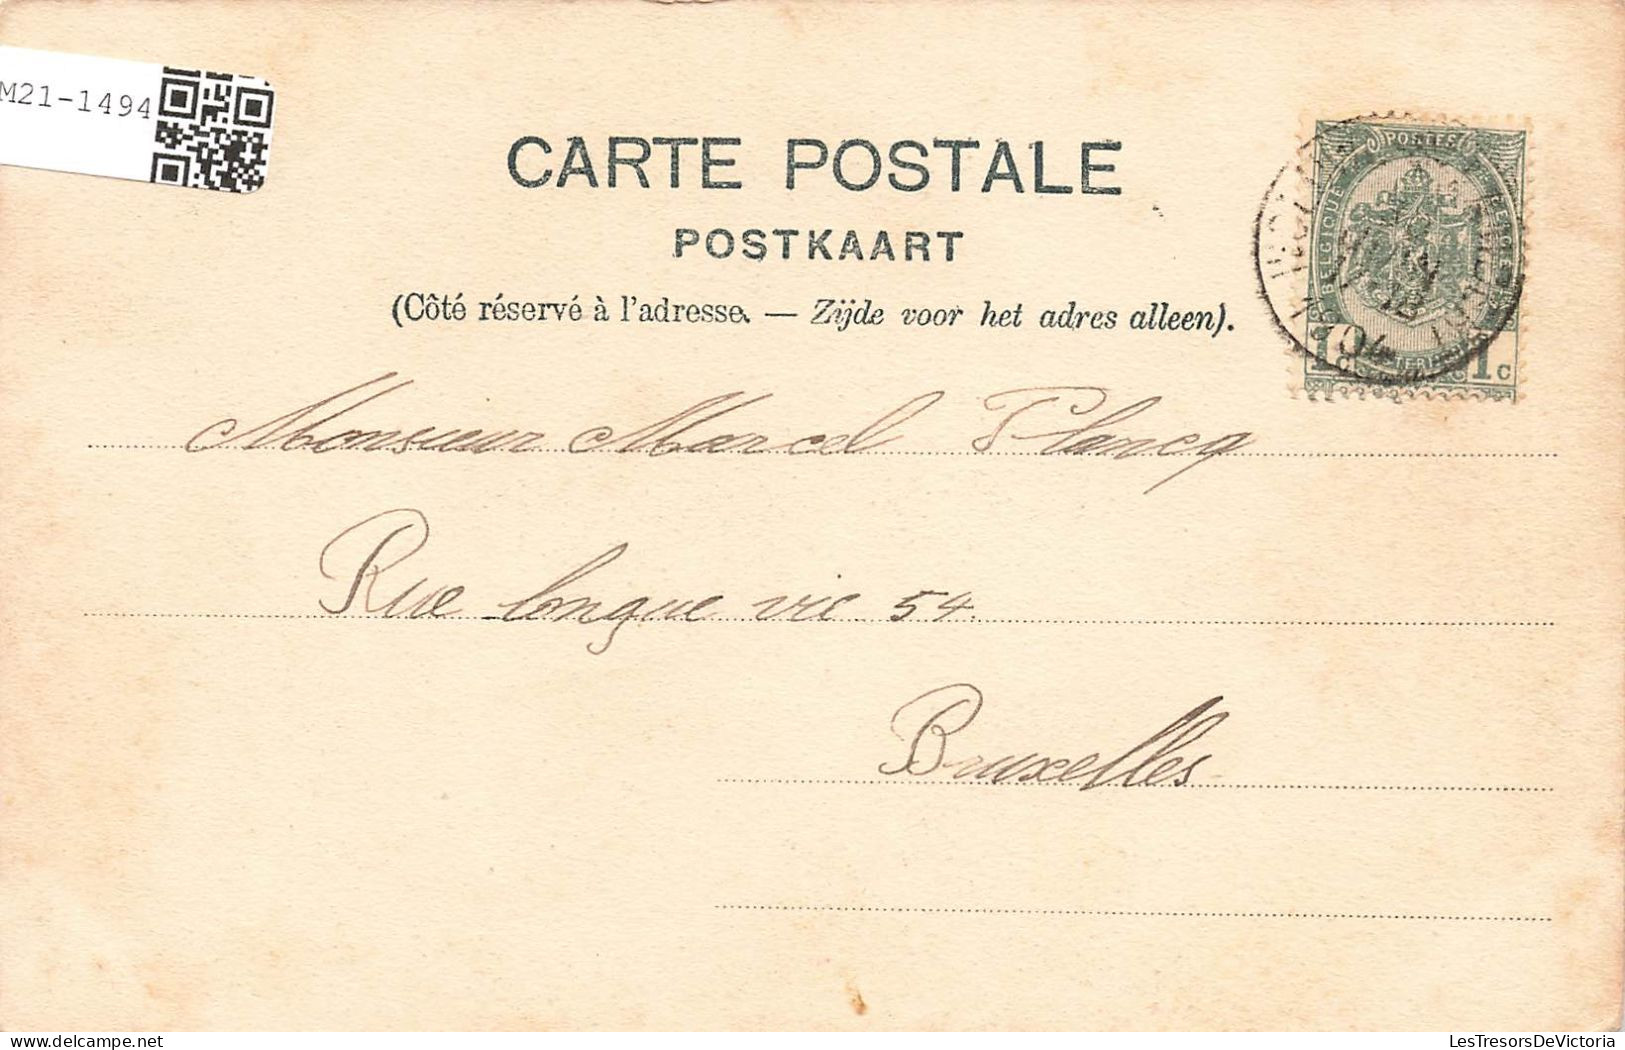 M21-1494
CARTE POSTALE
POSTKAART
(Côté réservé à l'adresse. — Zijde voor het adres alleen).
POSTES
BELGIQUE
1 1c
Monsieur Marcel Plancq
Rue longue vie 54.
Bruxelles
LesTresorsDeVictoria